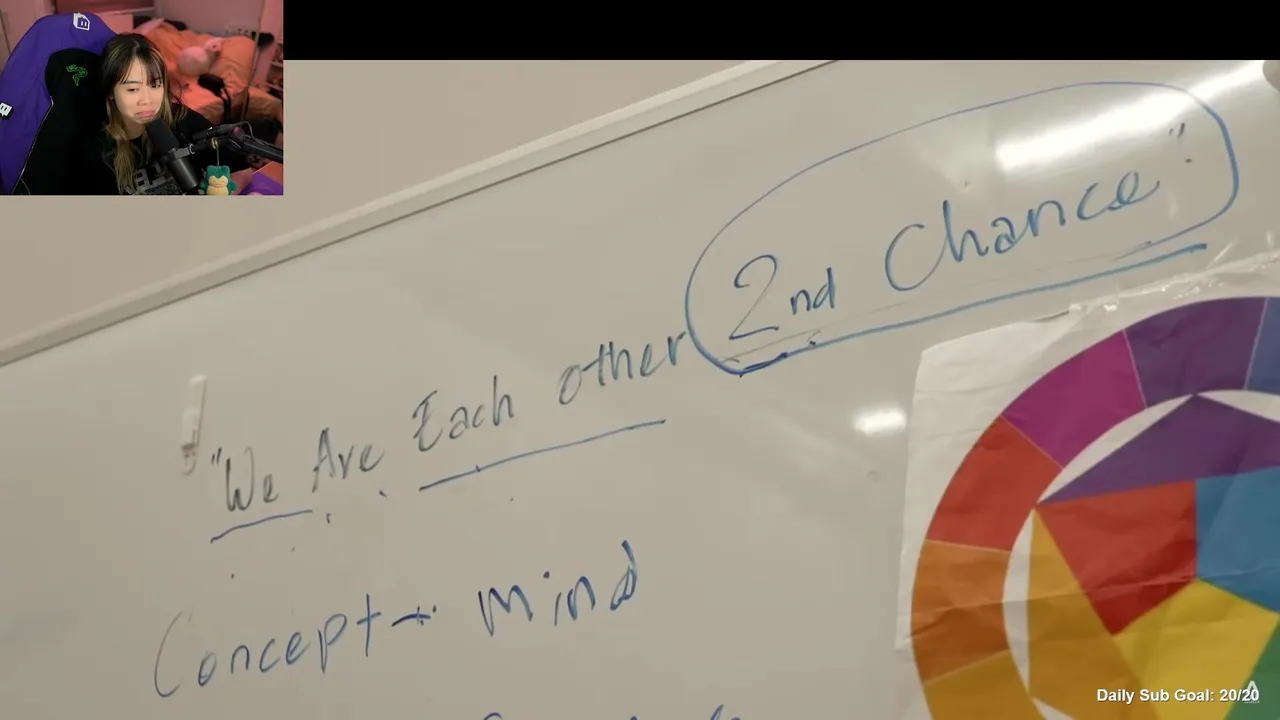 "We Are Each other 2nd Chance".
Concept → Mind
Daily Sub Goal: 20/20